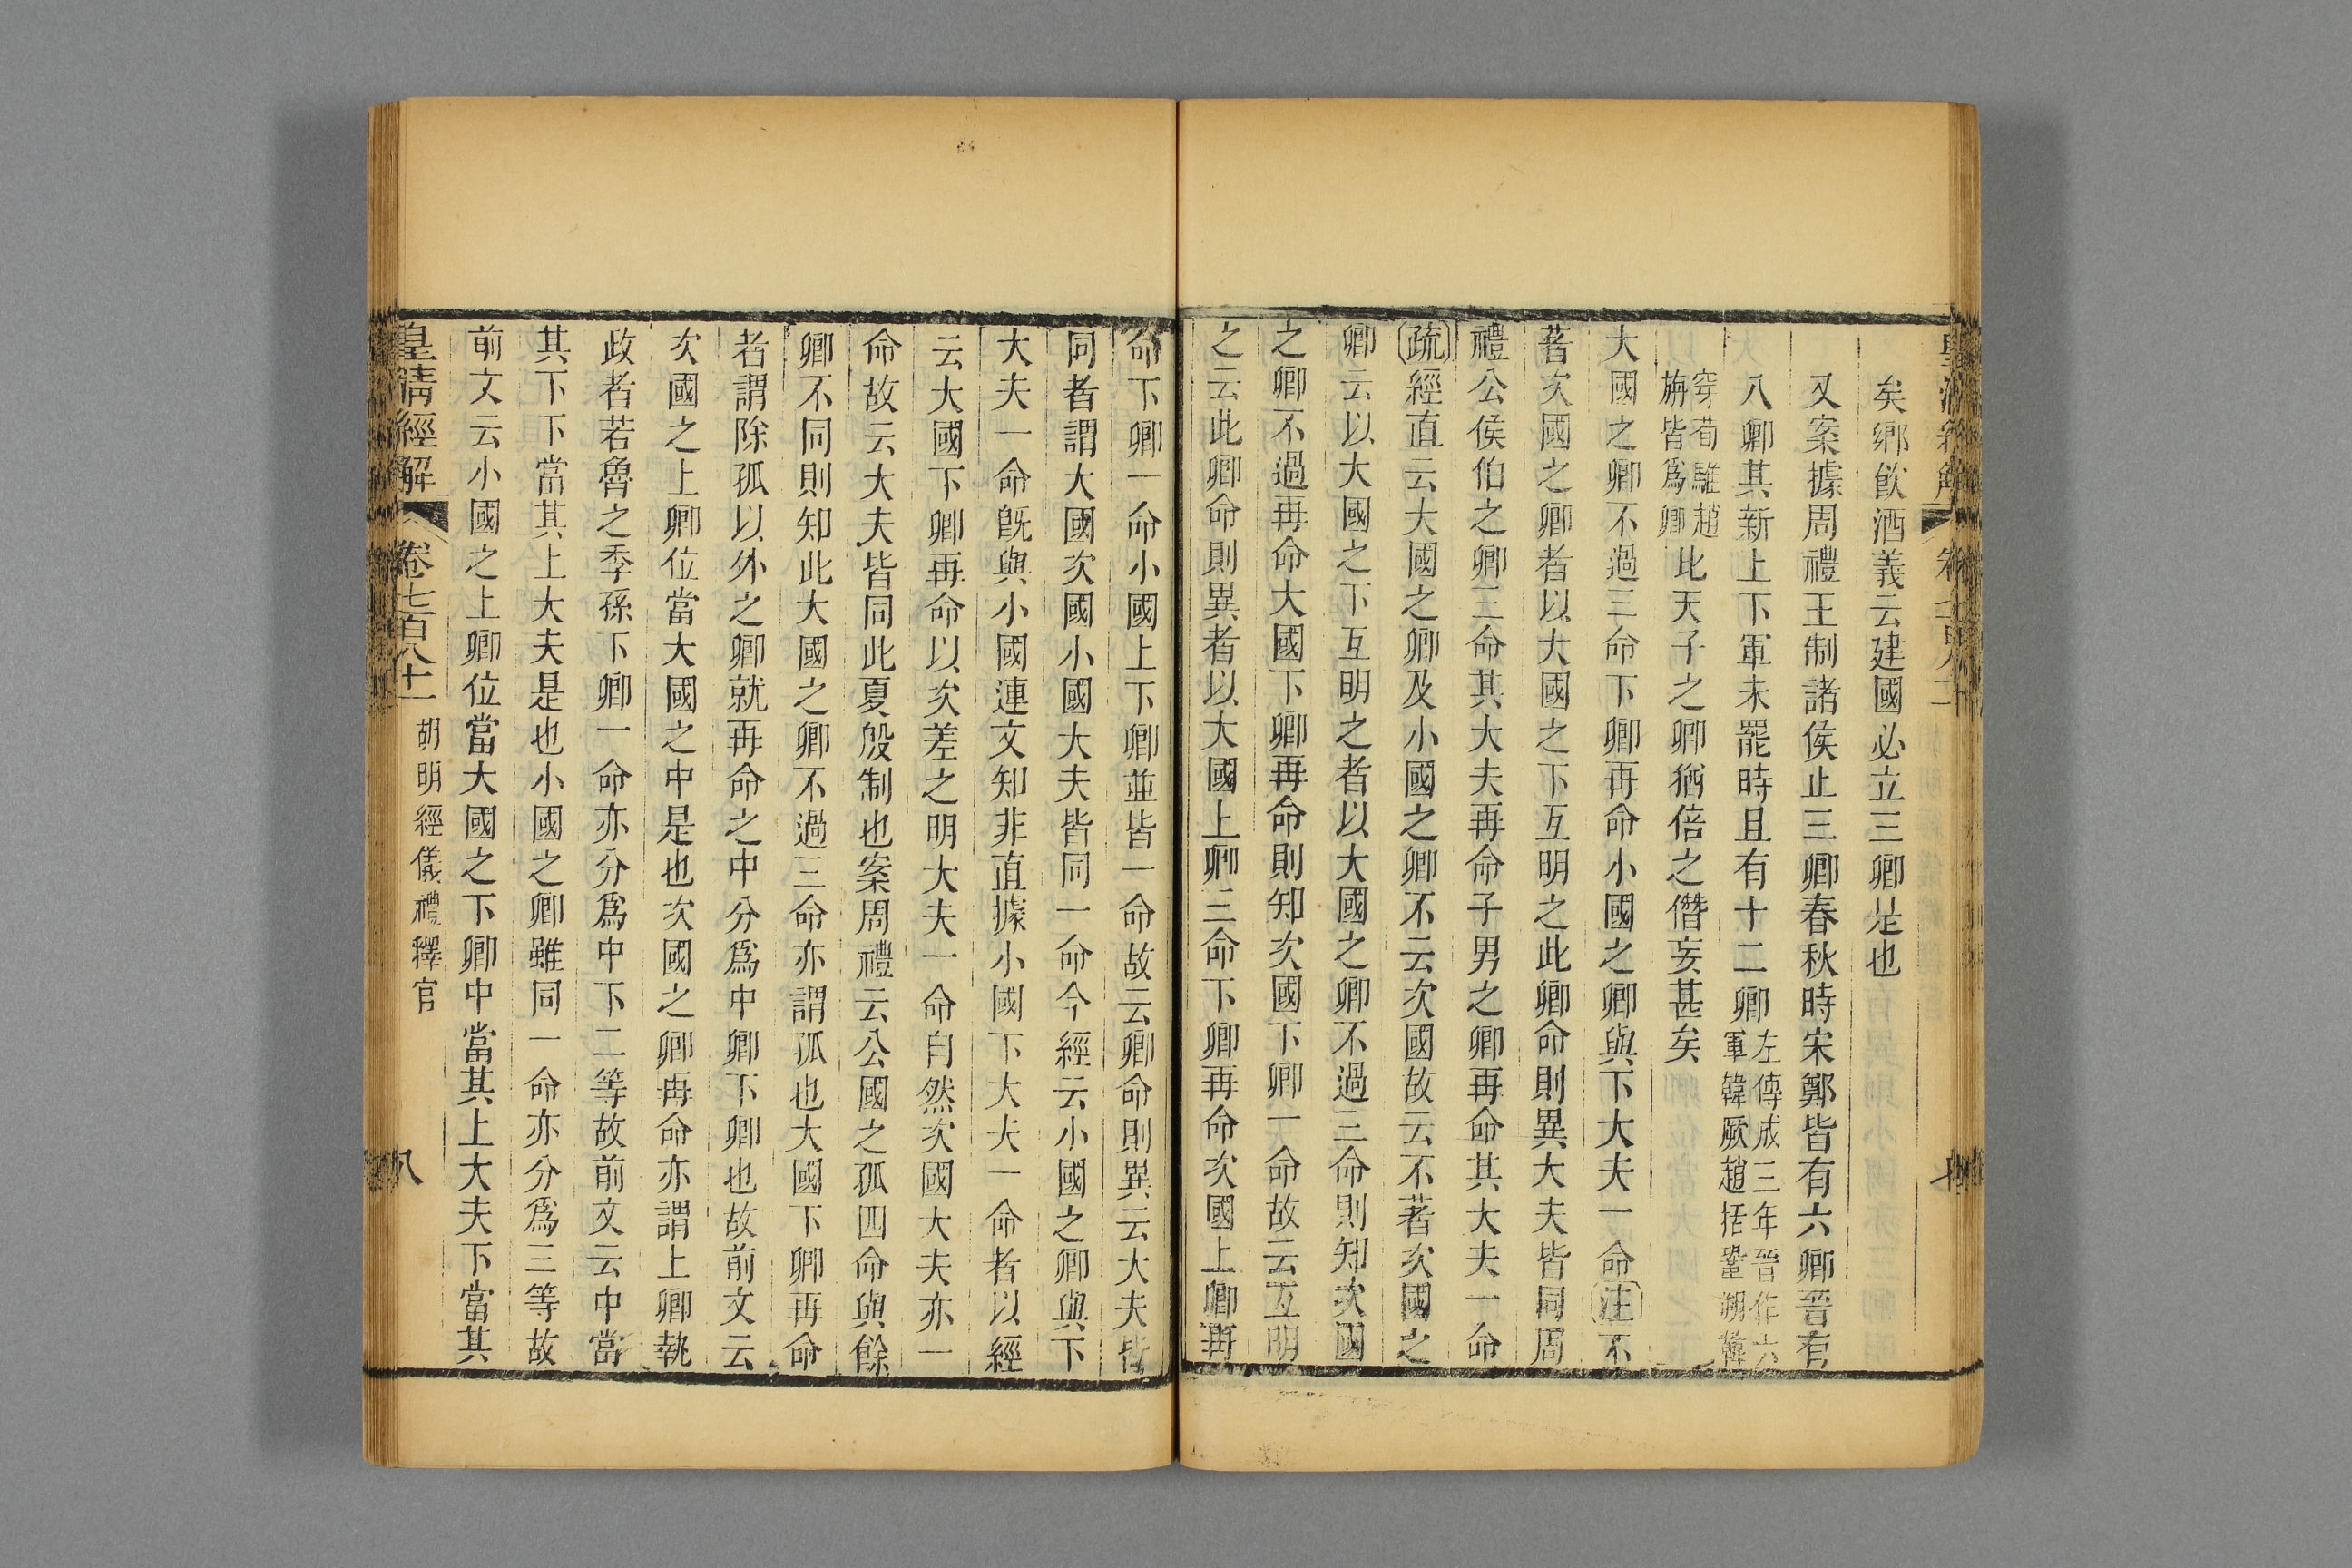 矣鄉飲酒義云建國必立三卿是也
又案據周禮王制諸侯止三卿春秋時宋鄭皆有六卿晉有
八卿其新上下軍未罷時且有十二卿左傳成三年晉作六
軍韓厥趙括鞏朔韓
穿荀騅趙
旃皆爲卿比天子之卿猶倍之僭妄甚矣
大國之卿不過三命下卿再命小國之卿與下大夫一命注不
著次國之卿者以大國之下互明之此卿命則異大夫皆同周
禮公侯伯之卿三命其大夫再命子男之卿再命其大夫一命
疏經直云大國之卿及小國之卿不云次國故云不著次國之
卿云以大國之下互明之者以大國之卿不過三命則知次國
之卿不過再命大國下卿再命則知次國下卿一命故云互明
之云此卿命則異者以大國上卿三命下卿再命次國上卿再
命下卿一命小國上下卿並皆一命故云卿命則異云大夫皆
同者謂大國次國小國大夫皆同一命今經云小國之卿與下
大夫一命旣與小國連文知非直據小國下大夫一命者以經
云大國下卿再命以次差之明大夫一命自然次國大夫亦一
命故云大夫皆同此夏殷制也案周禮云公國之孤四命與餘
卿不同則知此大國之卿不過三命亦謂孤也大國下卿再命
者謂除孤以外之卿就再命之中分爲中卿下卿也故前文云
次國之上卿位當大國之中是也次國之卿再命亦謂上卿執
政者若魯之季孫下卿一命亦分爲中下二等故前文云中當
其下下當其上大夫是也小國之卿雖同一命亦分爲三等故
前文云小國之上卿位當大國之下卿中當其上大夫下當其
皇清經解 卷七百八十一 胡明經儀禮釋官 八